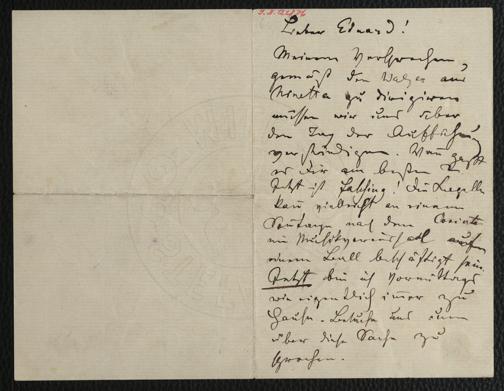 Lieber Eduard!
Meinem Versprechen,
gemäß den Walzer aus
Ninetta zu dirigieren
müssen wir uns über
den Tag der Aufführung
verständigen. Wann paßt
es Dir am besten?
Jetzt ist Fasching! Die Kapelle
kann vielleicht an einem
Sonntage nach dem Concerte
im Musikvereinssaal auf
einem Ball beschäftigt sein.
Jetzt bin ich Vormittags
wie eigentlich immer zu
Hause. Besuche uns um
über diese Sache zu
sprechen.